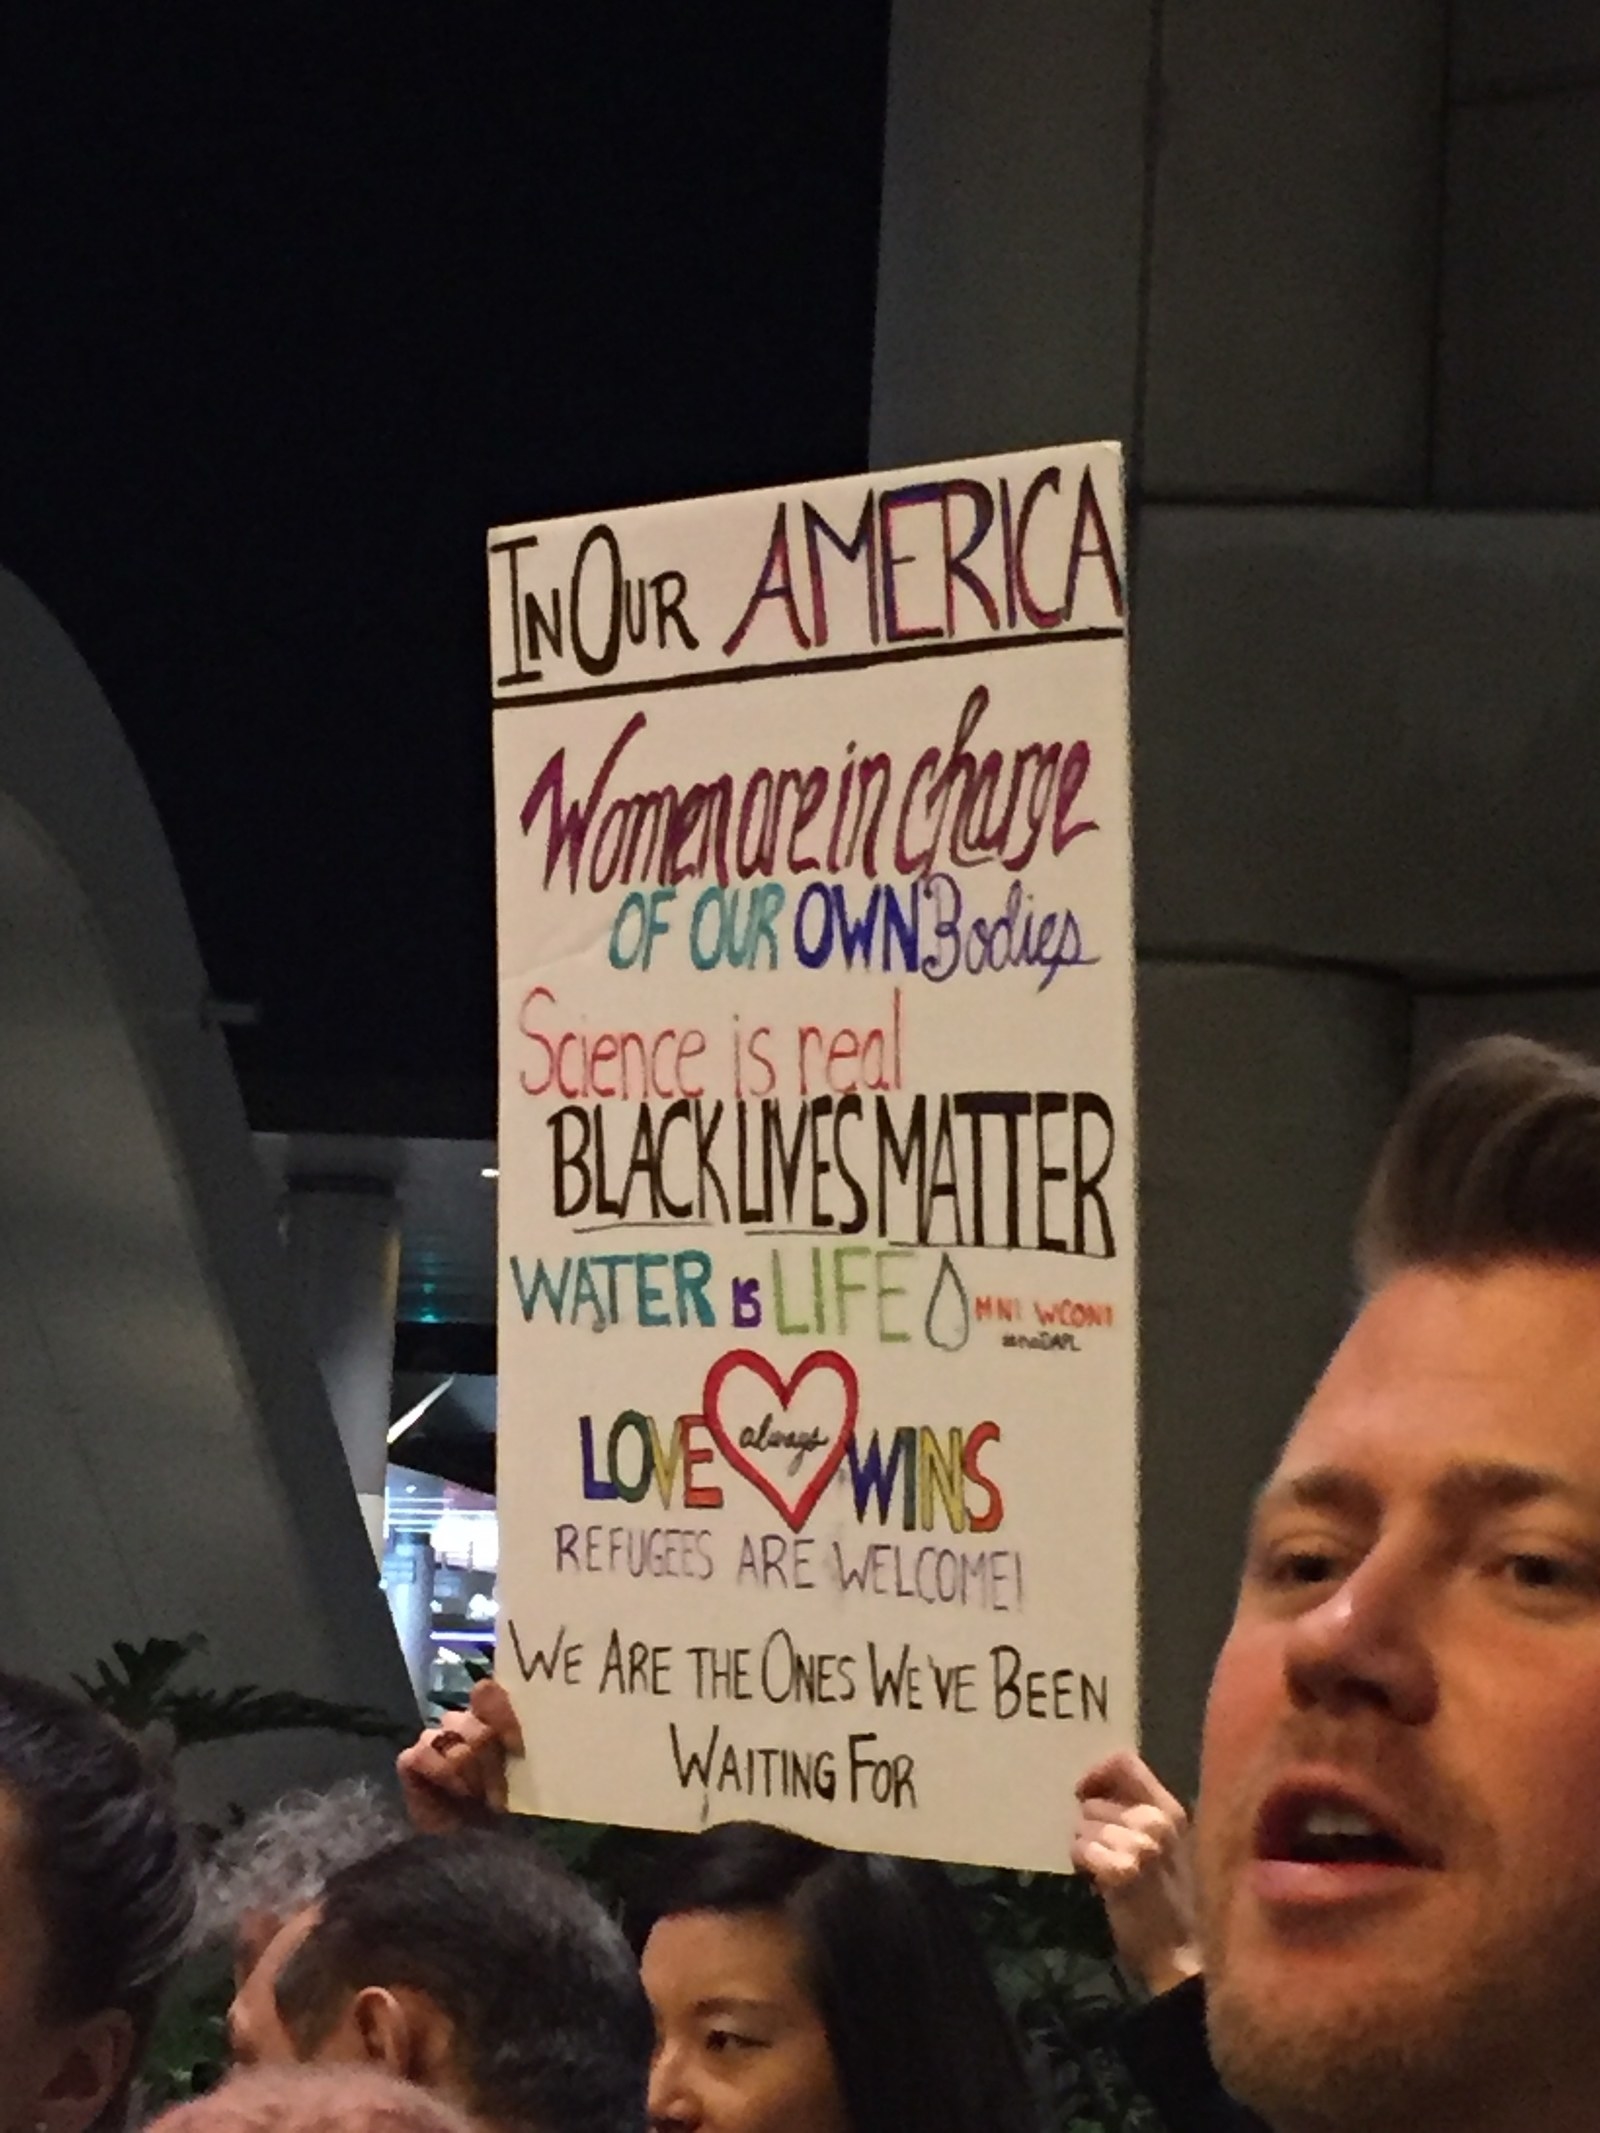 IN OUR AMERICA
Women are in charge
OF OUR OWN Bodies
Science is real
BLACK LIVES MATTER
WATER is LIFE MNI WCONI
#noDAPL
LOVE always WINS
REFUGEES ARE WELCOME!
WE ARE THE ONES WE'VE BEEN
WAITING FOR